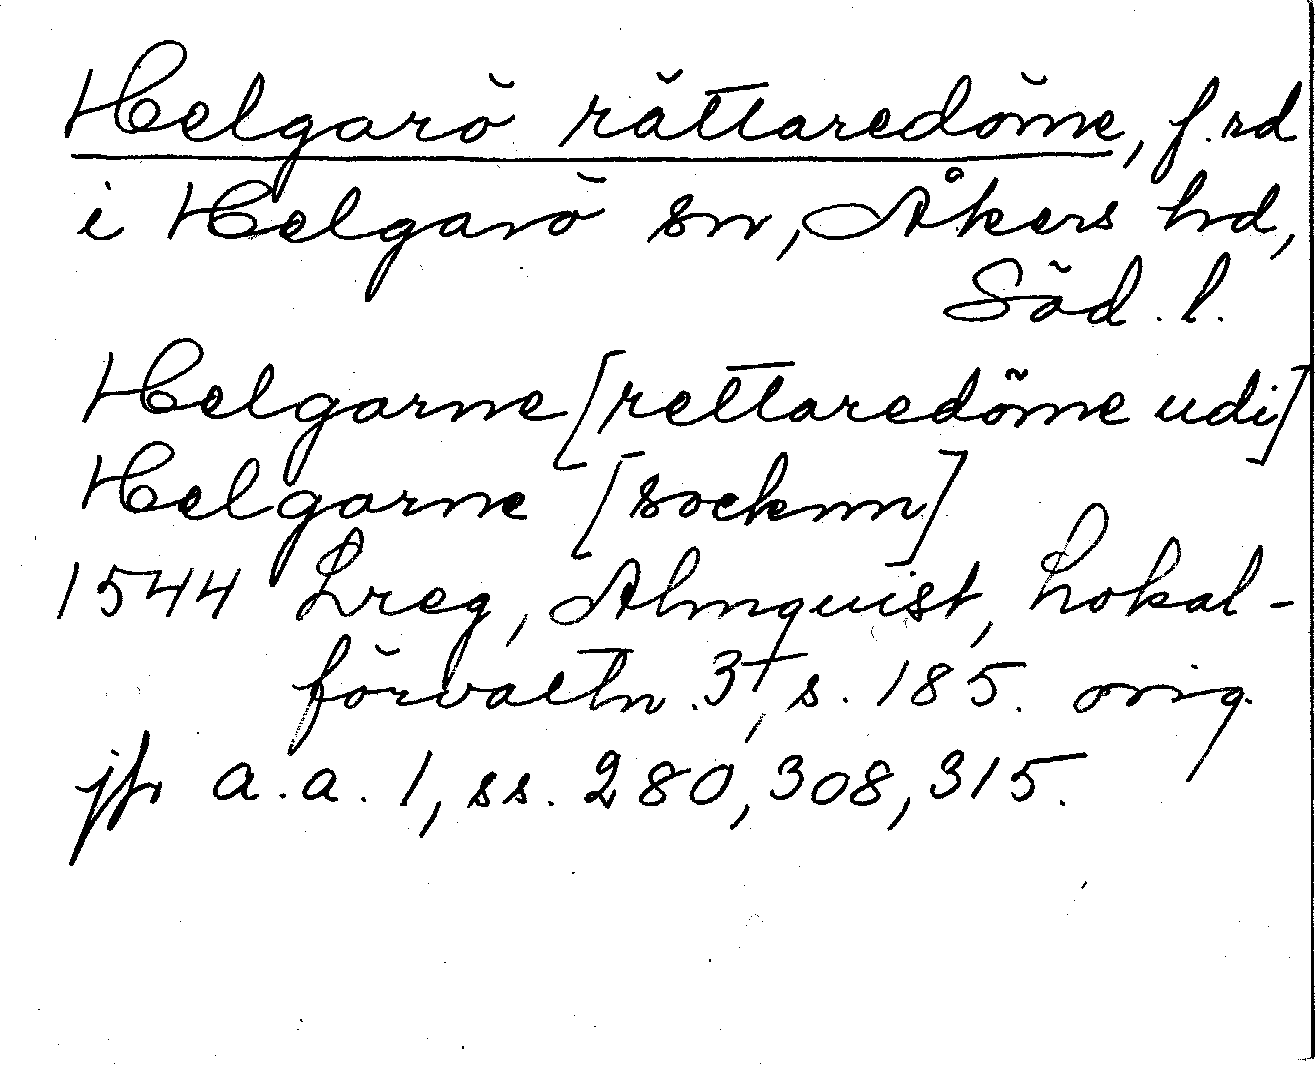 Helgarö rättaredöme, f. rd
i Helgarö sn, Åkers hd,
Söd. l.
Helgarne [rettaredöme udi]
Helgarne [socknn]
1544 Lreg, Almquist, Lokal-
förvaltn. 3+, s. 185. orig.
jfr a.a. 1, ss. 280, 308, 315.